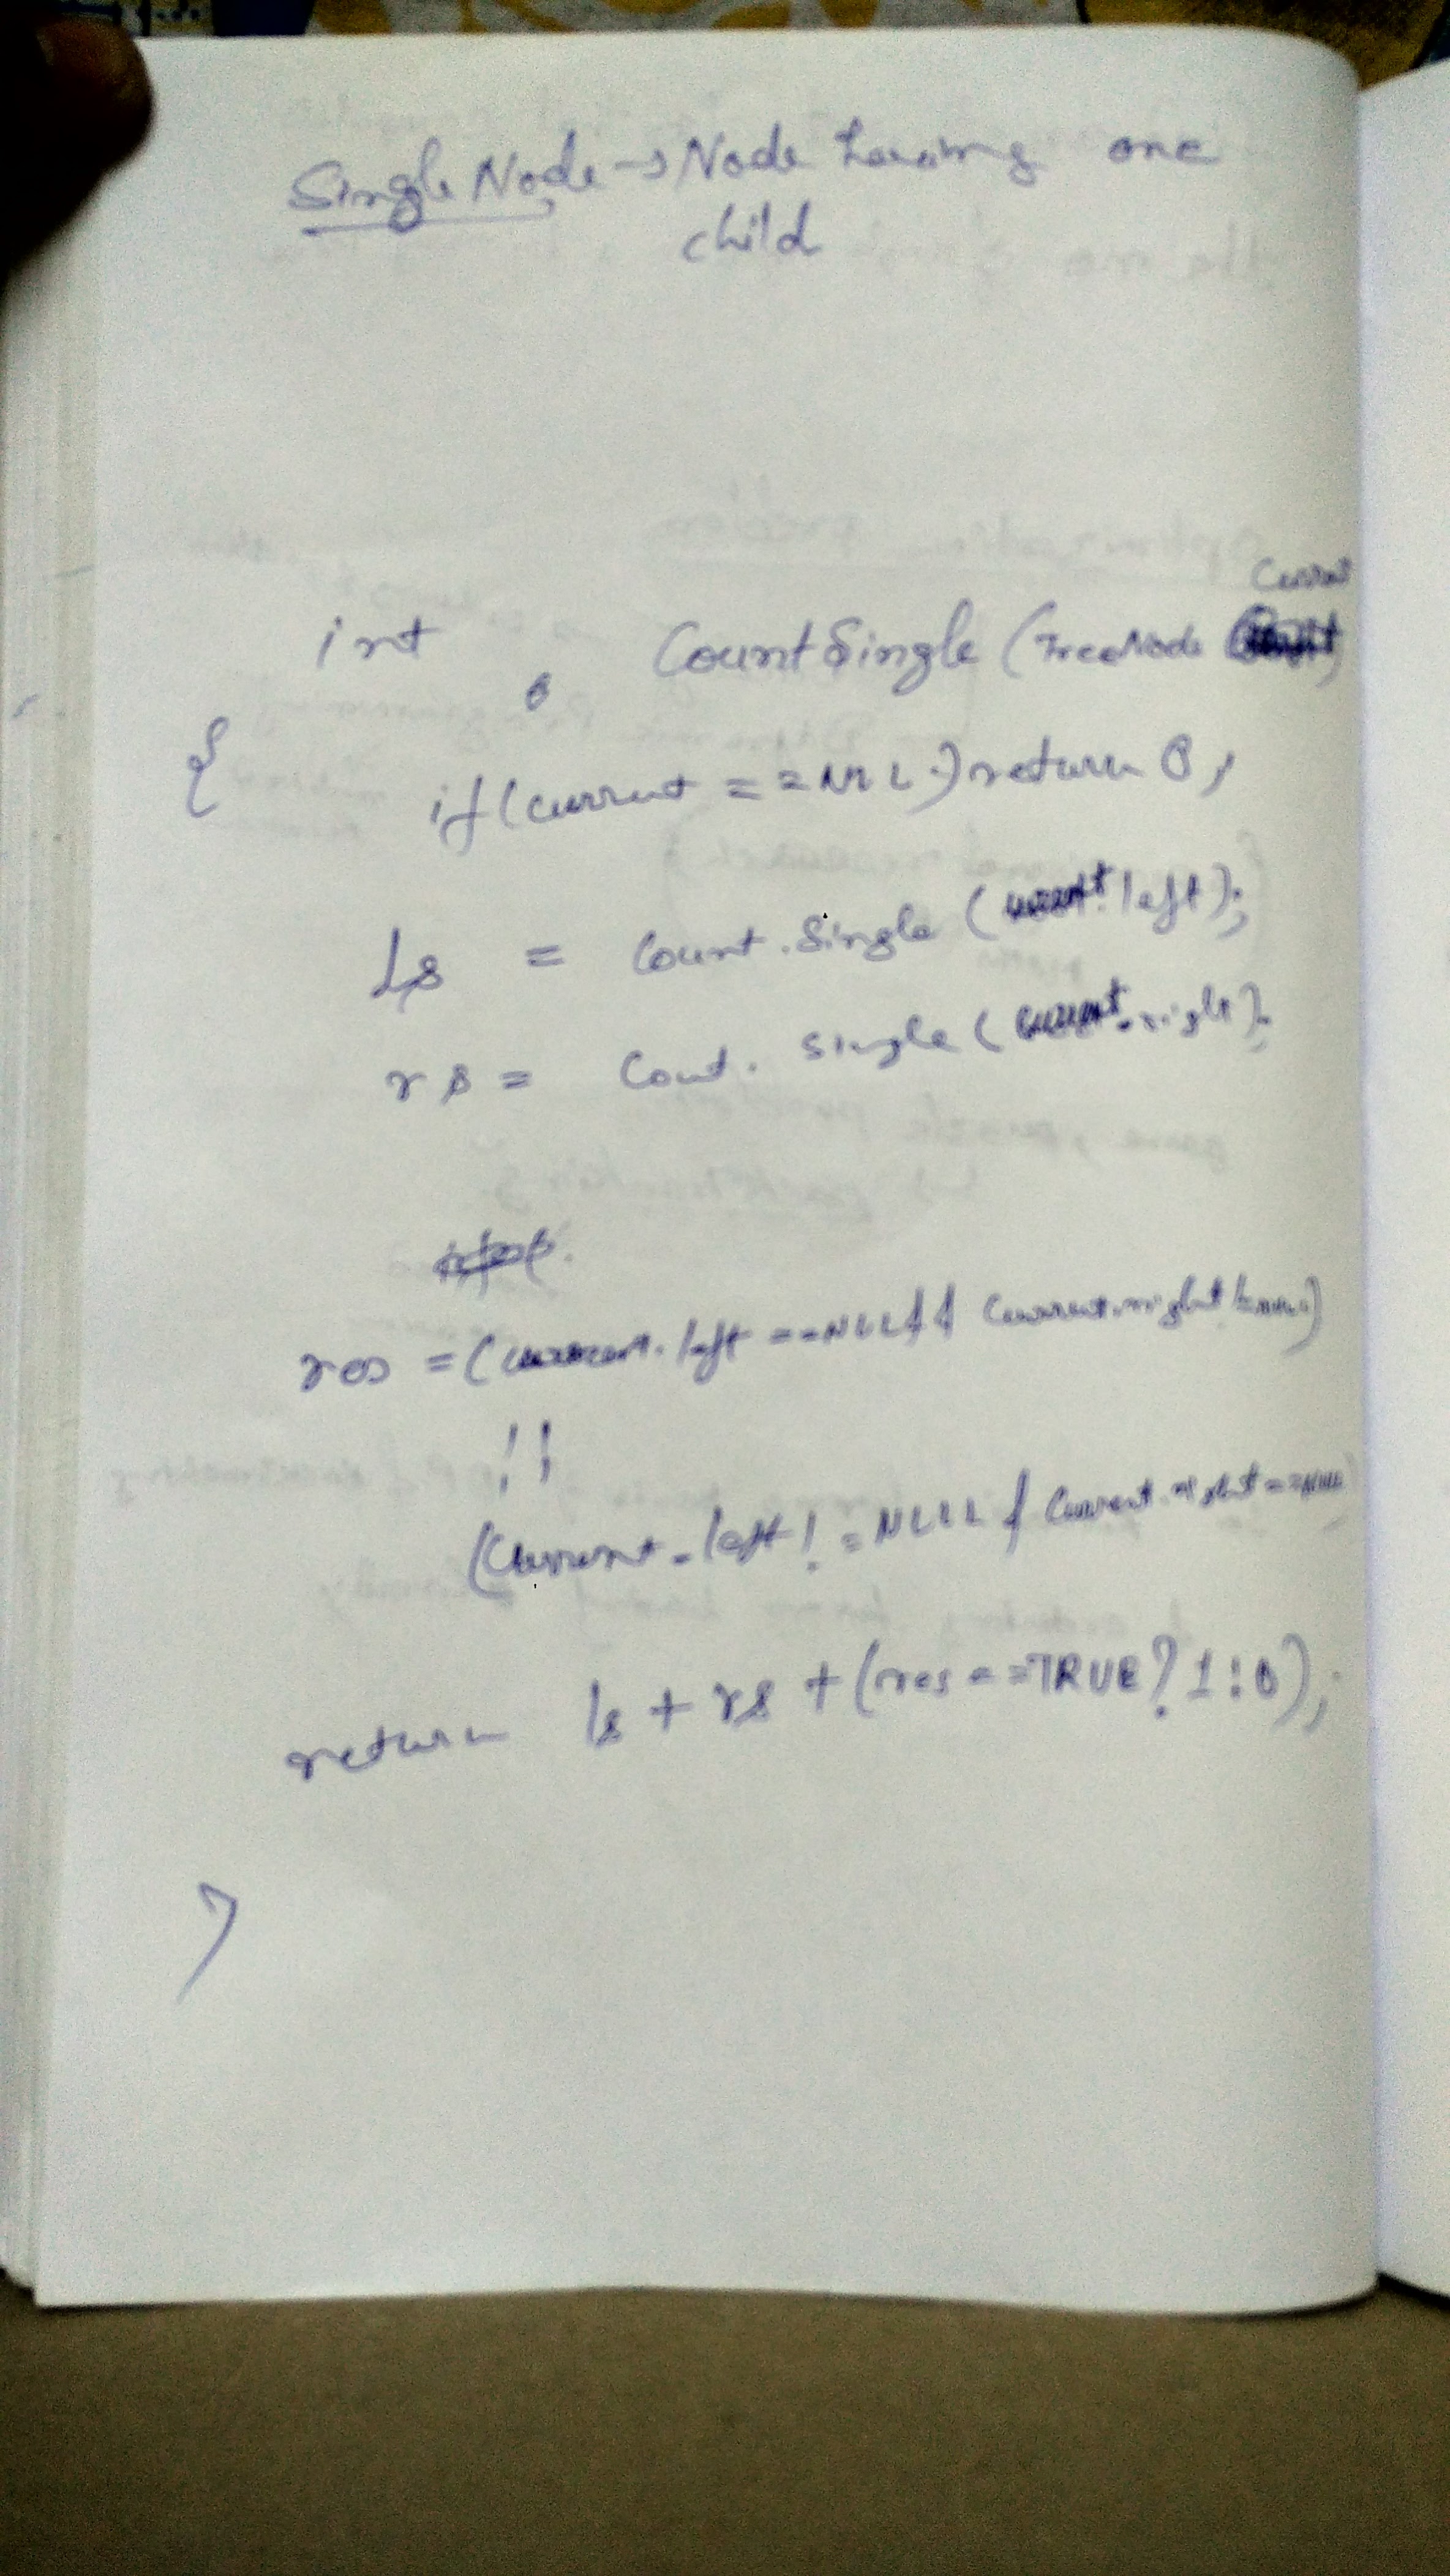 Single Node → Node having one
child
Current
int CountSingle (TreeNode
{ if (current == NULL) return 0;
Ls = Count.Single (current.left);
rs = Cout. Single (current.right);
res = (current.left == NULL && Current.right != NULL)
||
(Current.left != NULL & Current.right == NULL
return ls + rs + (res == TRUE ? 1 : 0);
}